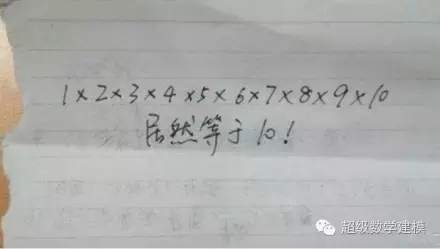 1×2×3×4×5×6×7×8×9×10
居然等于10!
超级数学建模